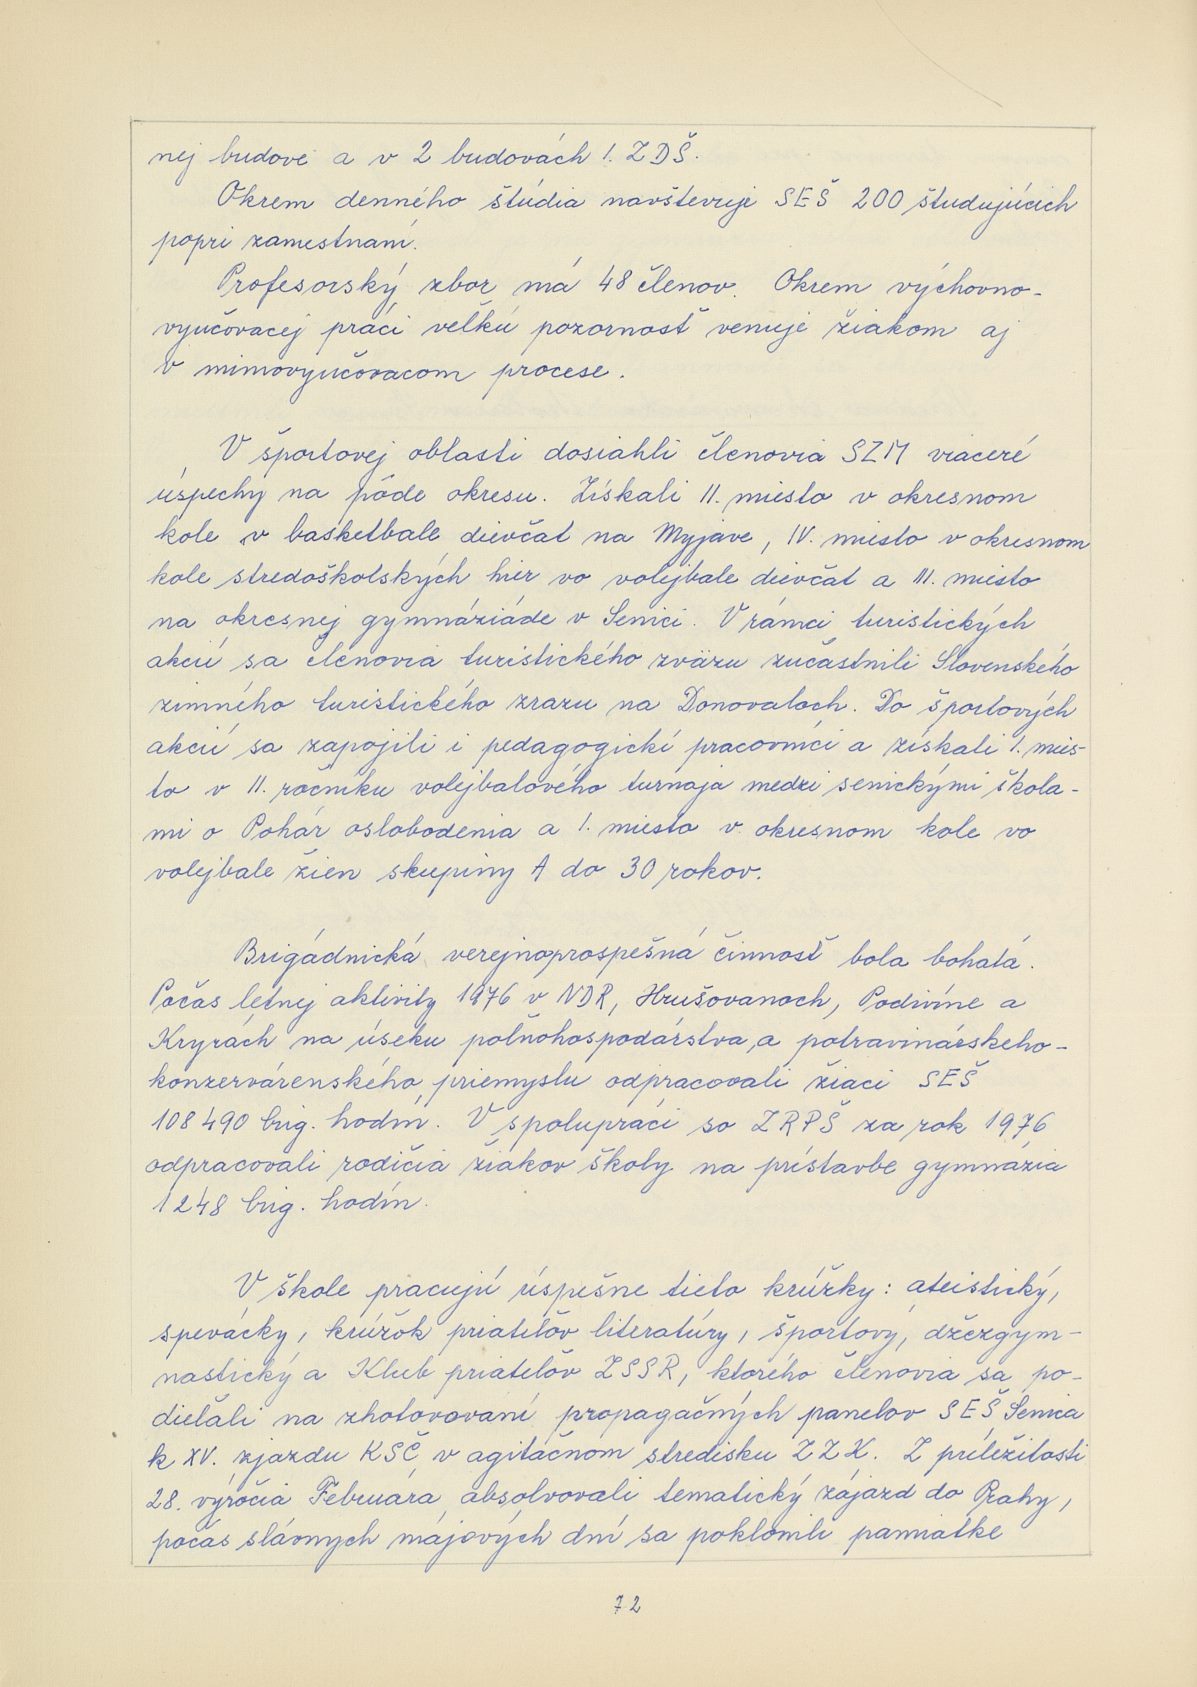 nej budove a v 2 budovách 1. ZDŠ.
Okrem denného štúdia navštevuje SEŠ 200 študujúcich
popri zamestnaní.
Profesorský zbor má 48 členov. Okrem výchovno-
vyučovacej práci veľkú pozornosť venuje žiakom aj
v mimovyučovacom procese.
V športovej oblasti dosiahli členovia SZM viaceré
úspechy na pôde okresu. Získali II. miesto v okresnom
kole v basketbale dievčat na Myjave, IV. miesto v okresnom
kole stredoškolských hier vo volejbale dievčat a III. miesto
na okresnej gymnáziáde v Senici. V rámci turistických
akcií sa členovia turistického zväzu zúčastnili Slovenského
zimného turistického zrazu na Donovaloch. Do športových
akcií sa zapojili i pedagogickí pracovníci a získali I. mies-
to v II. ročníku volejbalového turnaja medzi senickými škola-
mi o Pohár oslobodenia a I. miesto v okresnom kole vo
volejbale žien skupiny A do 30 rokov.
Brigádnická verejnoprospešná činnosť bola bohatá.
Počas letnej aktivity 1976 v NDR, Hrušovanoch, Podivíne a
Kryrách na úseku poľnohospodárstva, a potravinárskeho-
konzervárenského priemyslu odpracovali žiaci SEŠ
108 490 brig. hodín. V spolupráci so ZRPŠ za rok 1976
odpracovali rodičia žiakov školy na prístavbe gymnázia
1248 brig. hodín.
V škole pracujú úspešne tieto krúžky: ateistický,
spevácky, krúžok priateľov literatúry, športový, džezgym-
nastický a Klub priateľov ZSSR, ktorého členovia sa po-
dieľali na zhotovovaní propagačných panelov SEŠ Senica
k XV. zjazdu KSČ v agitačnom stredisku ZZK. Z príležitosti
28. výročia Februára absolvovali tematický zájazd do Prahy,
počas slávnych májových dní sa poklonili pamiatke
72